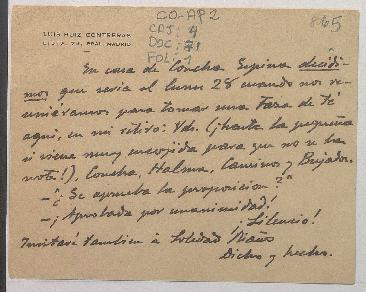 LUIS RUIZ CONTRERAS
MADRID
CO-AP2
CAJ: 4
DOC: 71
FOL: 1
865
En casa de Concha Espina decidi-
mos que sería el lunes 28 cuando nos re-
uniéramos para tomar una taza de té
aquí, en mi retiro: Vds. (¡hasta la pequeña
si viene muy encojida para que no se ha
note!), Concha, Halma, Camino y
—"¿Se aprueba la proposición?"
—¡Aprobada por unanimidad!
¡Silencio!
Invitaré también à Soledad
Dicho y hecho.